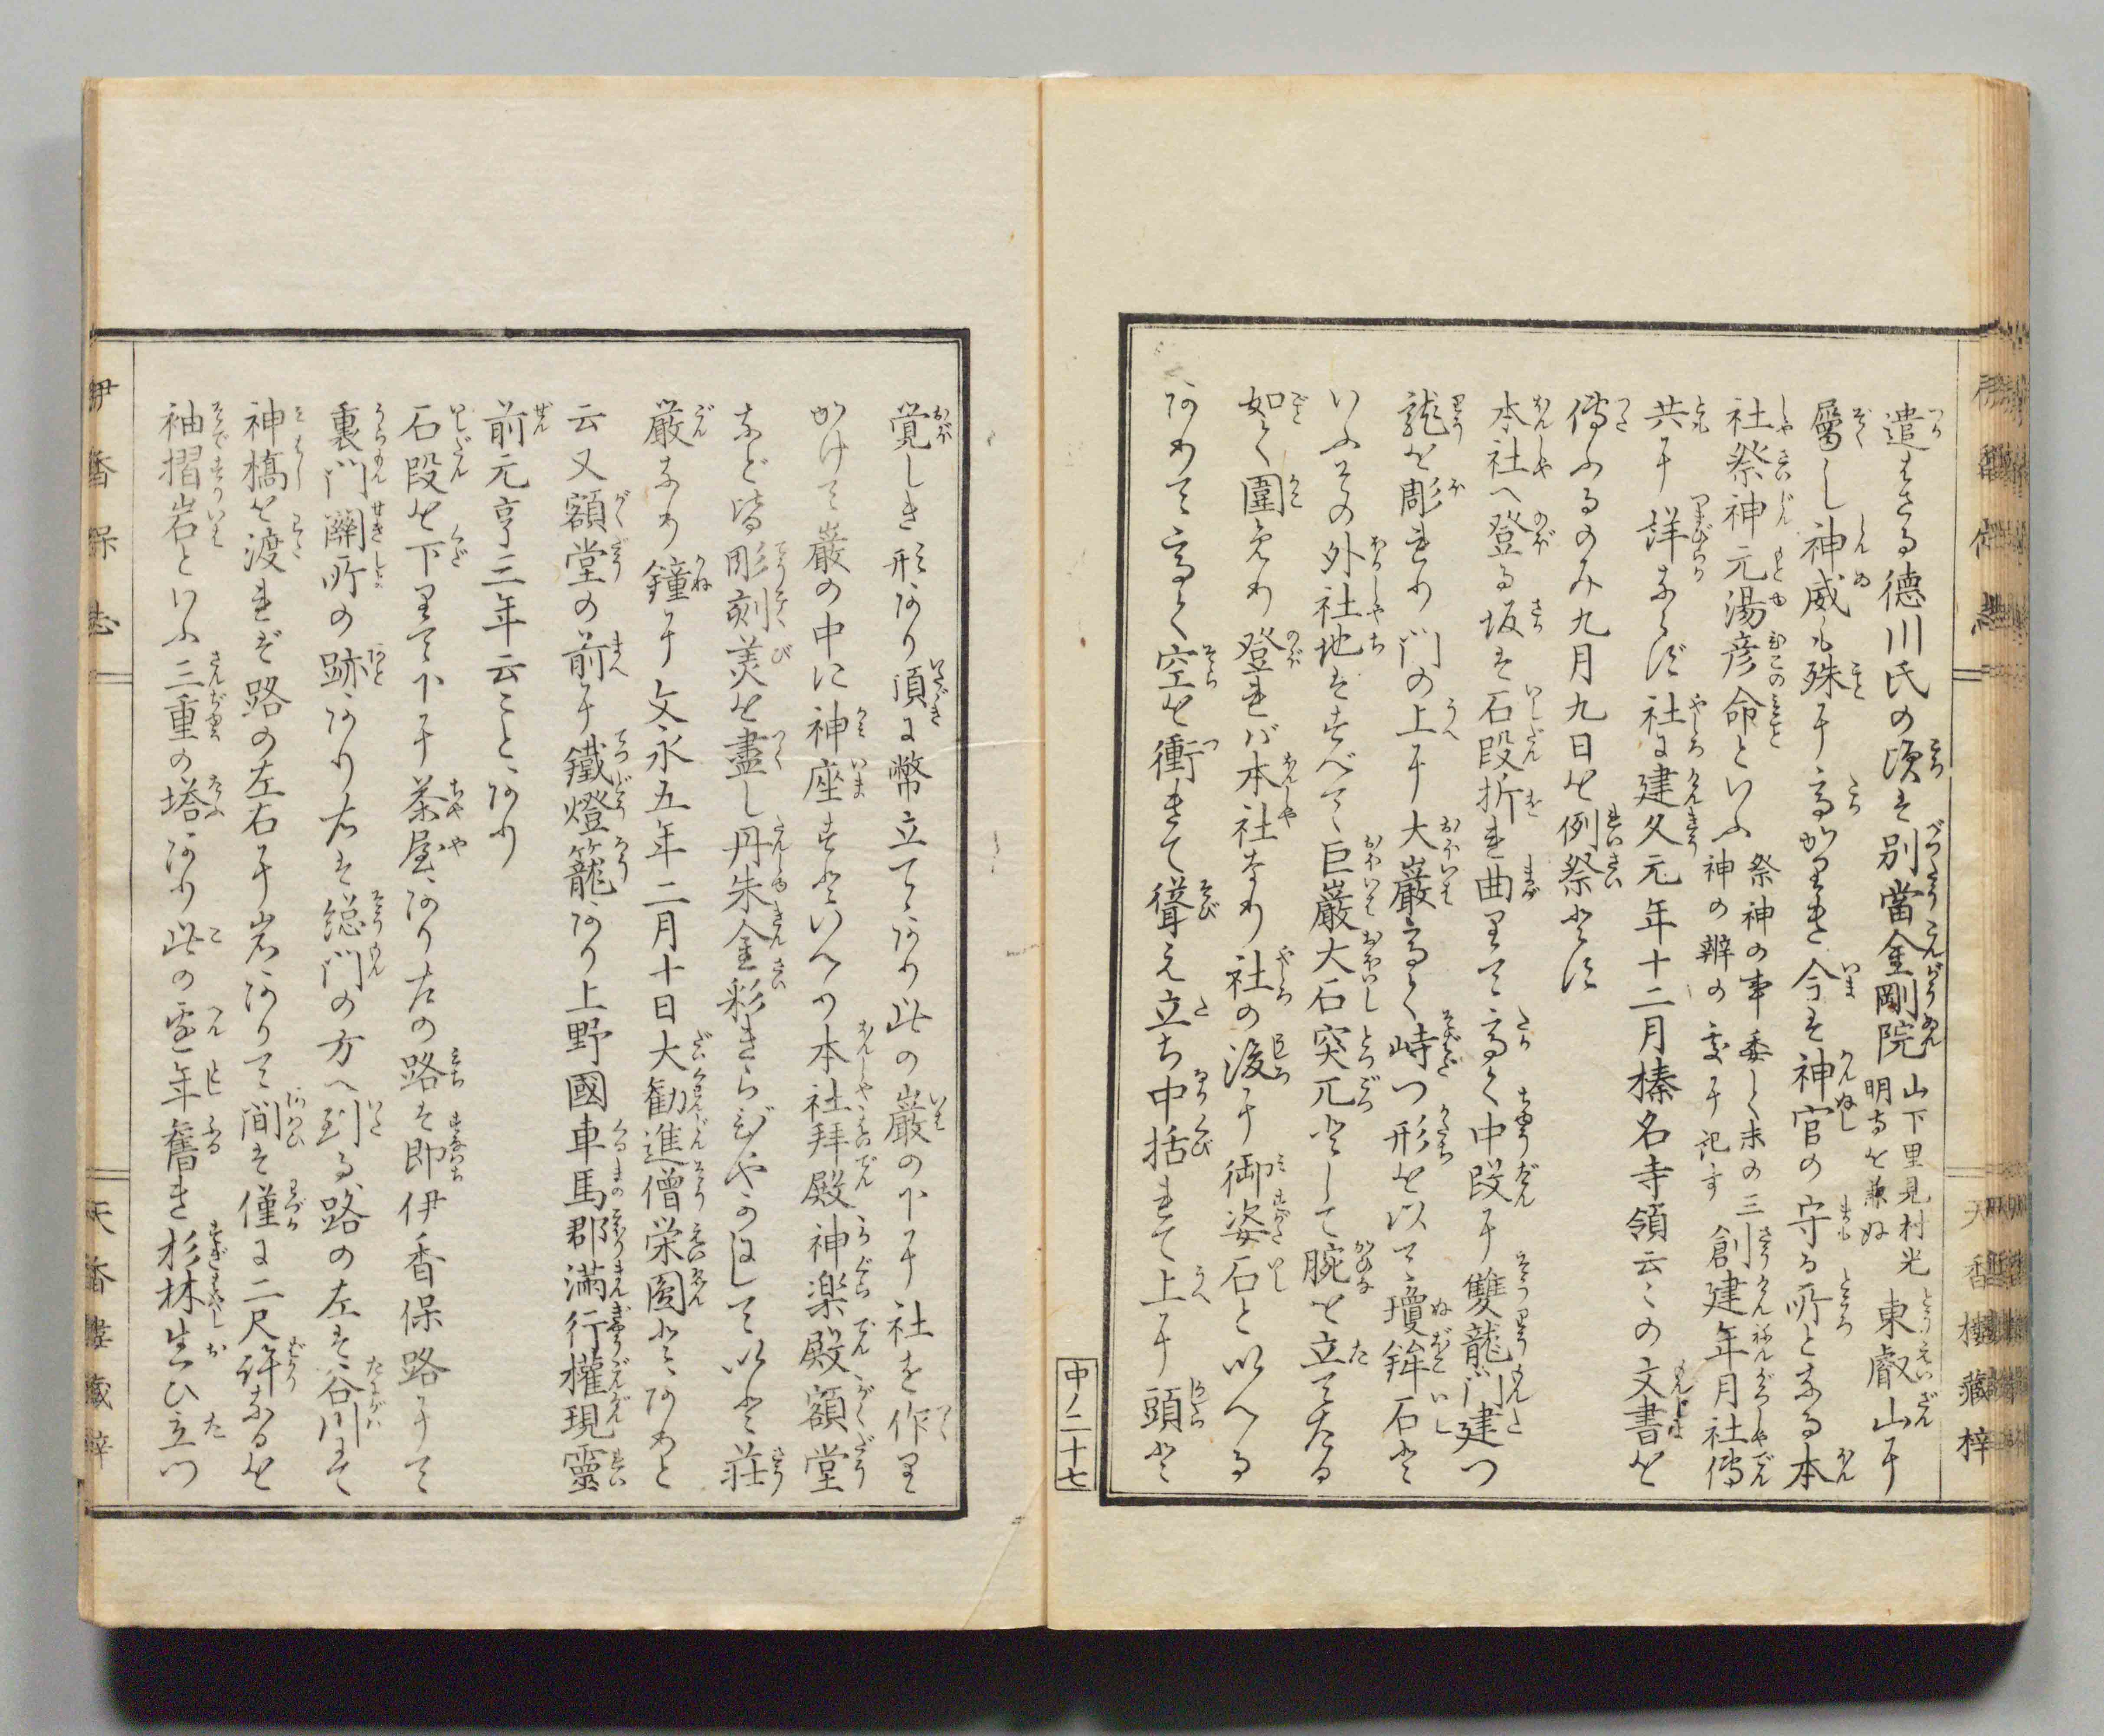 遣はさる德川氏の後は別當金剛院 山下里見村光明寺を兼ぬ 東叡山に
屬し神威も殊に高かりき今は神官の守る所となる本
社祭神元湯彦命といふ 祭神の事委しく末の三神の辨の處に記す 創建年月社傳
共に詳ならず社に建久元年十二月榛名寺領云々の文書を
傳ふるのみ九月九日を例祭とす
本社へ登る坂は石段折れ曲りて高く中段に雙龍門建つ
龍を彫れり門の上に大巖高く峙つ形を以て瓊鉾石と
いふその外社地はすべて巨巖大石突兀として腕を立てたる
如く圍めり登れば本社なり社の後に御姿石といへる
ありて高く空を衝きて聳え立ち中括れて上に頭と
中ノ二十七
覚しき形あり頂に幣立てあり此の巖の下に社を作り
かけて巖の中に神座すといへり本社拜殿神楽殿額堂
など皆彫刻美を盡し丹朱金彩きらびやかにして以と莊
厳なり鐘に文永五年二月十日大勸進僧栄圓とありと
云又額堂の前に鐵燈籠あり上野國車馬郡満行權現靈
前元亨三年云ことあり
石段を下りて下に茶屋あり左の路は即伊香保路にて
裏門關所の跡あり右は総門の方へ到る路の左は谷川にて
神橋を渡れば路の左右に岩ありて間は僅に二尺許なるを
袖摺岩といふ三重の塔あり此の邊年舊き杉林生ひ立つ
伊香保志
天香樓藏梓